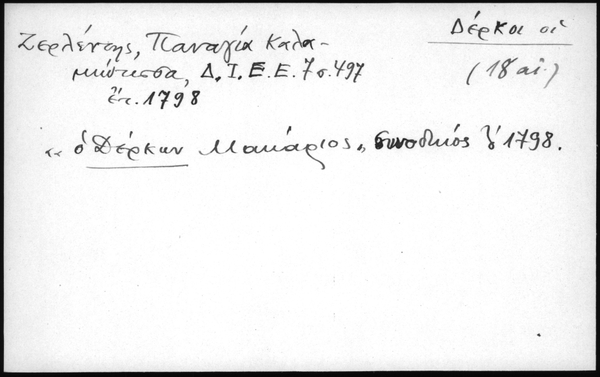 Δέρκοι οἱ
Ζερλέντης, Παναγία Καλα-
μιώτισσα, Δ. Ι. Ε. Ε. 7 σ. 497
ἔτ. 1798
(18 αἰ.)
"ὁ Δέρκων Μακάριος" συνοδικός 1798.